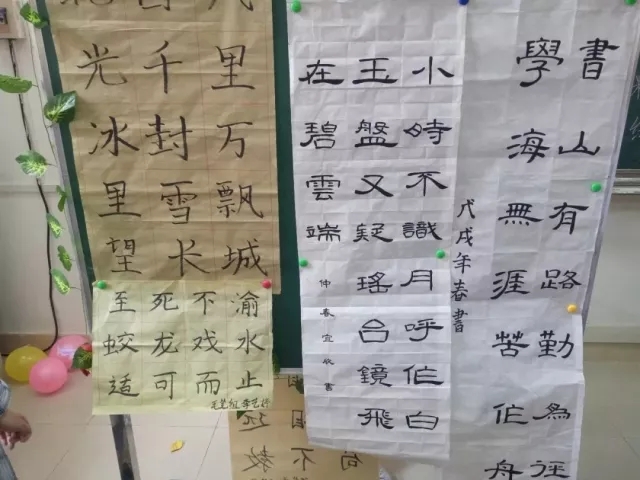 書山有路勤為徑
學海無涯苦作舟
戊戌年春書
小時不識月呼作白
玉盤又疑瑤台鏡飛
在碧雲端
仲春
書
光千里
冰封万
里雪飘
望长城
至死不渝
蛟龙戏水
适可而止
毛笔组
不教